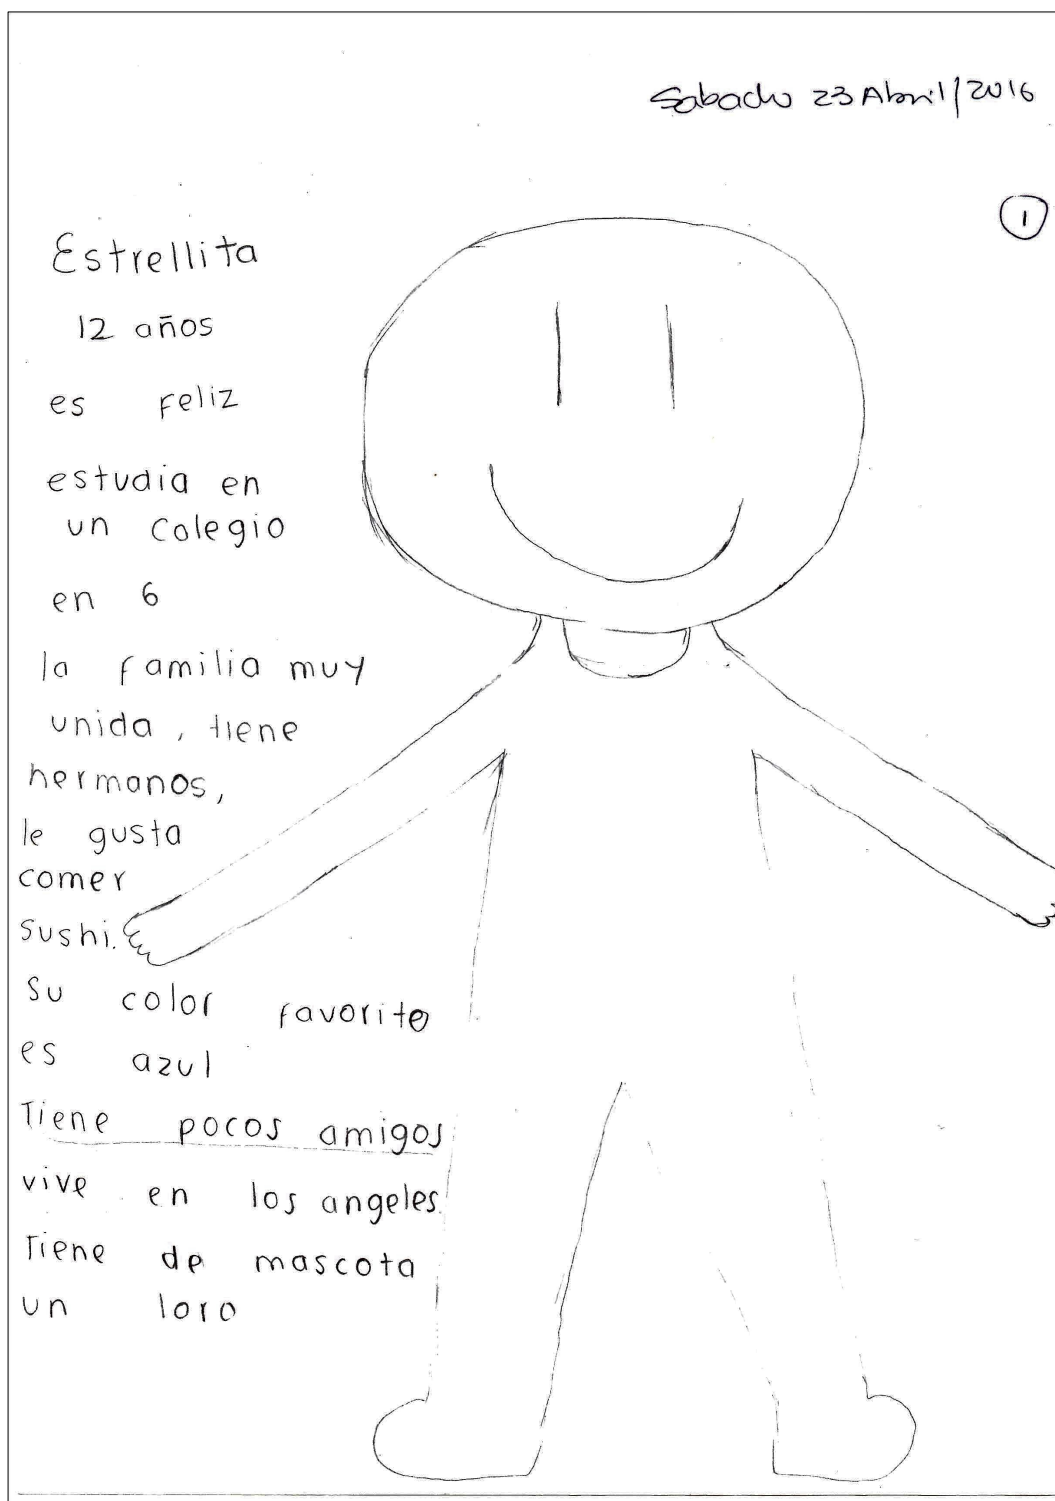 Sabado 23 Abril/2016
1
Estrellita
12 años
es Feliz
estudia en
un colegio
en 6
la familia muy
unida, tiene
hermanos,
le gusta
comer
sushi.
Su color favorito
es azul
Tiene pocos amigos
vive en los angeles.
Tiene de mascota
un loro